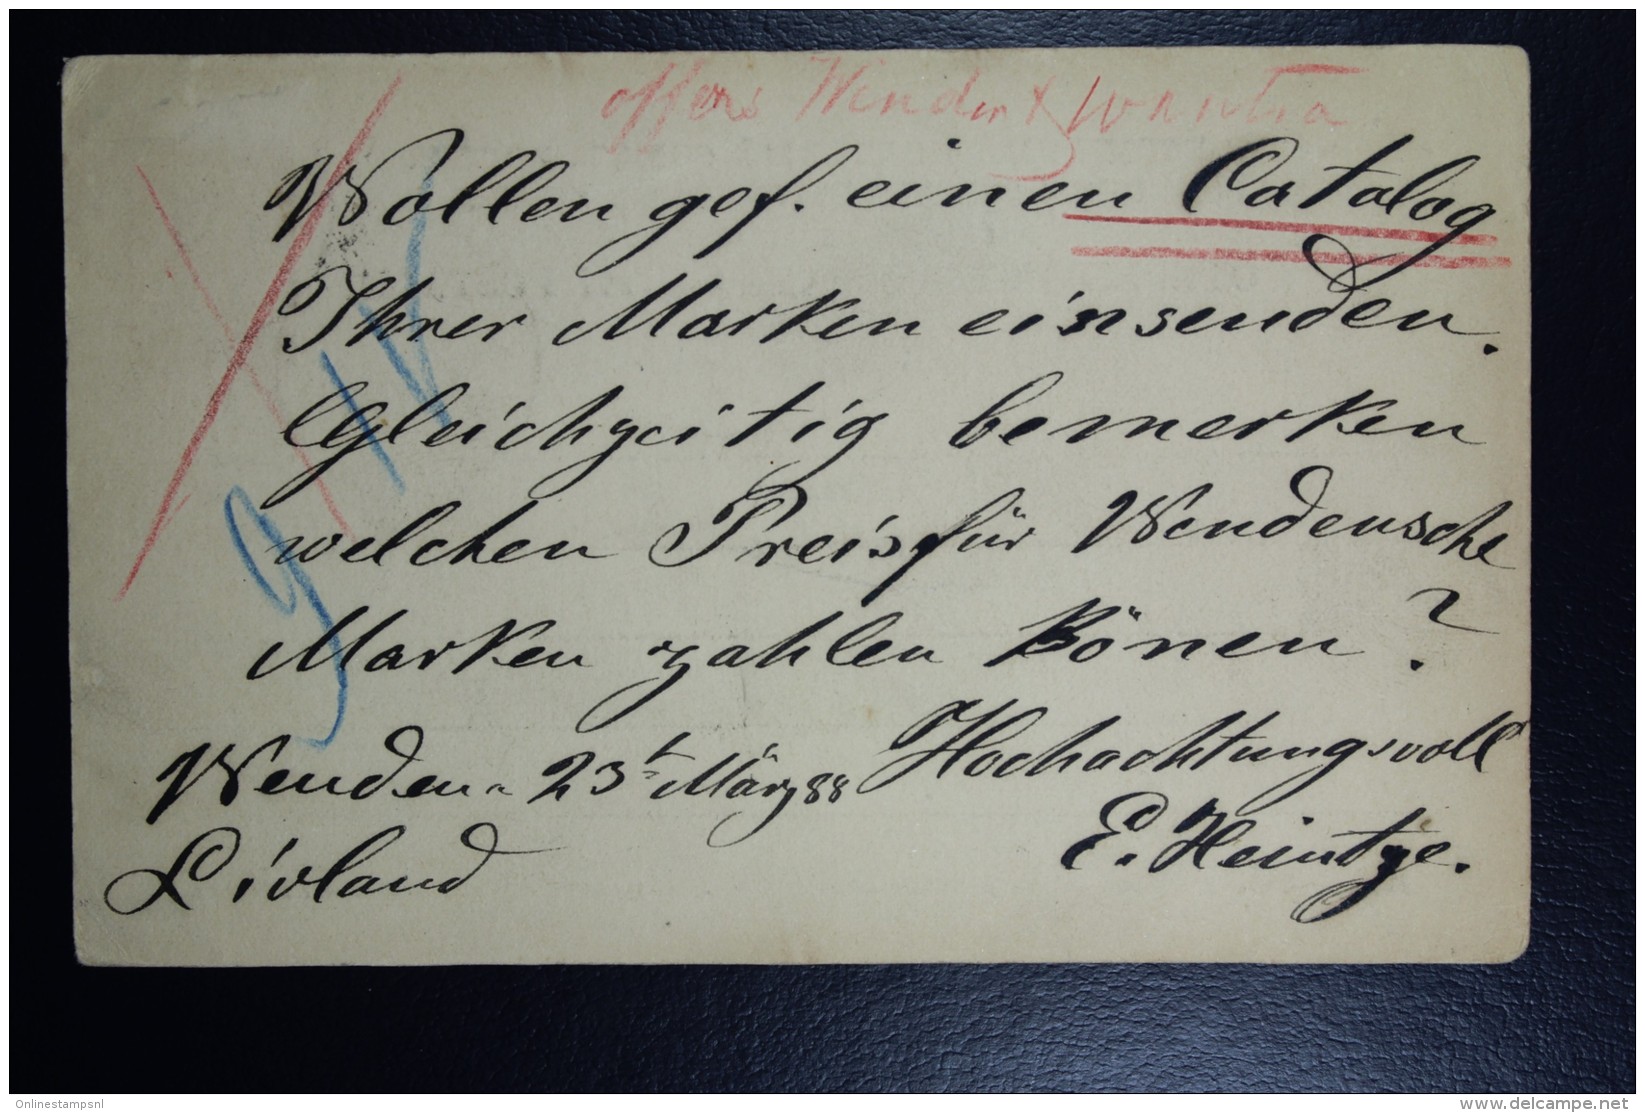 offers Wenden
Wollen gef. einen Catalog
Ihrer Marken einsenden.
Gleichzeitig bemerken
welchen Preis für Wendensche
Marken zahlen könen?
Wenden. 23t März 88 Hochachtungsvoll
Livland E. Heintze.
Onlinestampsnl
delcampe.net